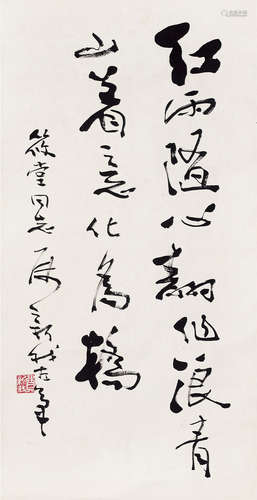 红雨随心翻作浪青
山着意化为桥
筱堂同志属